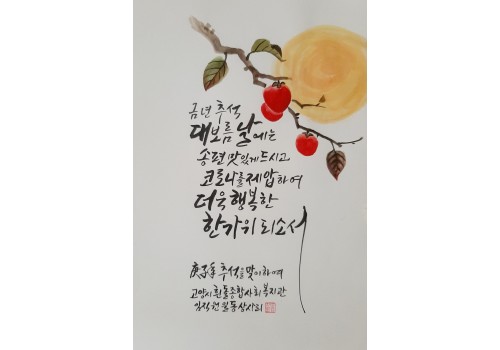 금년 추석
대보름날에는
송편 맛있게 드시고
코로나를 제압하여
더욱 행복한
한가위 되소서
庚子年 추석을 맞이하여
고양시 흰돌종합사회복지관
임직원 일동 상사희